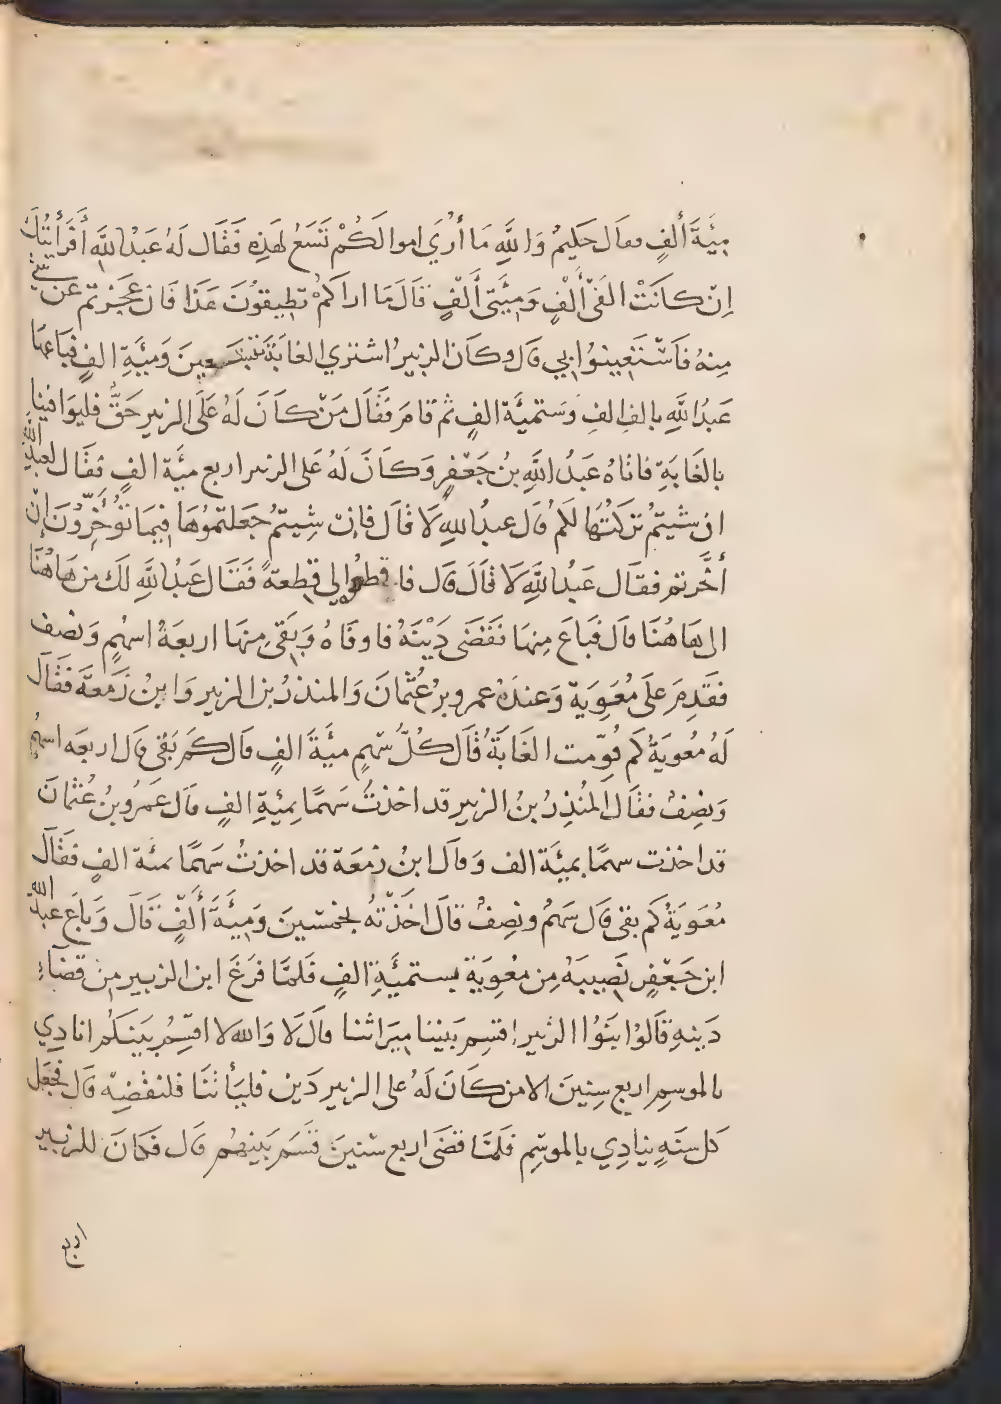 مِيَّةَ أَلفٍ فقال حَكِيمُ وَاللَّهِ مَا أُرَي اموالَكُمْ تَسَعُ لِهَذِهِ فَقَال لَهُ عَبْدُ اللَّهِ أَفَرَأَيْتُكَ
اِنْ كَانَتْ الفَىْ أَلْفٍ وَمِيَّتَى أَلْفٍ قَالَ مَا اراكمْ تطيقوُنَ هَذَا فَان عَجَزتم عن شَىْءٍ
مِنهُ فَاَسْتَعِينوُا بِي قَال وكَان الزبيرُ اشترى الغَابَةَ بتسَعِينَ وَمِيَّةِ الفٍ فبَاعهَا
عَبدُ اللَّهِ بالفِ الفِ وَستميَّة الفٍ ثم قامَ فَقَال مَنْ كَانَ لَهُ عَلَى الزبيرِ حَقُّ فليوَافينا
بالغَابَةِ فاتاهُ عَبدُ اللَّهِ بنُ جَعْفرٍ وَكَانَ لَهُ عَلى الزبير اربع ميَّة الفٍ فقَال لعبدِ اللَّهِ
ان شيتمُ تركتُهَا لكم قال عبدُ اللهِ لَا قَال فاِن شِيتمُ جَعلتموُهَا فِيمَا تؤَخِّروُنَ اِنْ
أخَّرتم فقَال عَبدُ اللَّهِ لَا قالَ قال فاقطعُوا لي قطعةً فَقَال عَبدُ اللَّهِ لَكَ مِن هَاهُنَا
الى هَاهُنَا قال فبَاعَ مِنهَا فقَضَى دَيْنَهُ فاوفَاهُ وَبَقىِ مِنهَا اربعَةُ اسهُمٍ وَنصف
فقَدِمَ عَلَى مُعَوِيَة وَعندَهُ عمرو بنُ عُثمَانَ وَالمنذرُ بنُ الزبيرِ وَابنُ زَمعَةَ فَقَالَ
لَهُ مُعويَةُ كم قُوّمت الغَابَةُ قَال كُلُّ سَهمٍ ميَّةَ الفٍ قال كم بَقىَ قال اربعَه اسهُمٍ
وَنِصِفُ فقَال المُنذِرُ بنُ الزبيرِ قد اخذتُ سَهمًا بِميَّةِ الفٍ قال عَمروُ بنُ عُثمَانَ
قد اخذت سهمًا بميَّة الف وَقال ابنُ زمعَة قد اخذتُ سَهمًا بميَّة الفٍ فقَال
مُعَويَةُ كم بقى قال سَهمُ ونصِفُ قالَ اخَذْتهُ بخمسينَ وَمِيَّةَ أَلفٍ قَالَ وَباَع عَبدُ اللَّه
ابن جَعْفرٍ نَصِيبَهُ مِن معُوِيَة بستميَّةِ الفٍ فَلمَّا فَرَغَ ابن الزبيرِ مِن قضَاءِ
دَينهِ قَالوُا بَنوُا الزبيرِ اقسِم بَيننا مِيرَاثنا قَالَ لَا وَالله لَا اقسِمُ بَينَكُم انادِي
بالموسِم اربع سِنِينَ الا من كَانَ لَهُ على الزبيرِ دَين فليَأتنَا فلنقضِهِ قال فجعَل
كل سنَةٍ ينادِي بالموسِمِ فَلمَّا قضَى اربع سنينَ قسَمَ بَينهُم قال فَكانَ للزبيرِ
اربع